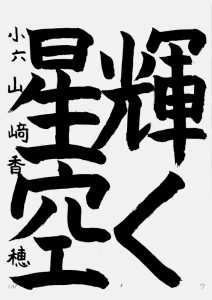 輝く
星空
小六 山﨑香穂